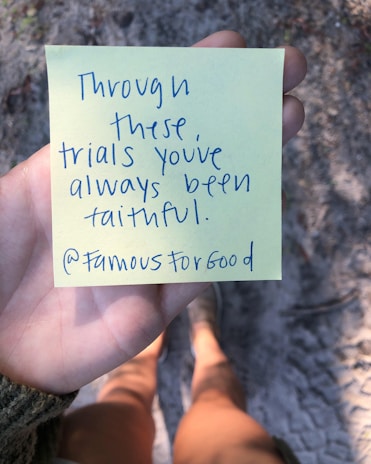 Through
these,
trials you've
always been
faithful.
@FamousForGood